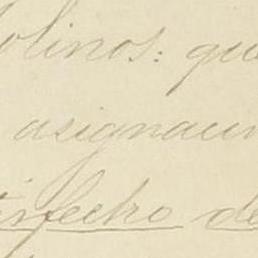 olinos: que
asignacion
tisfecho de